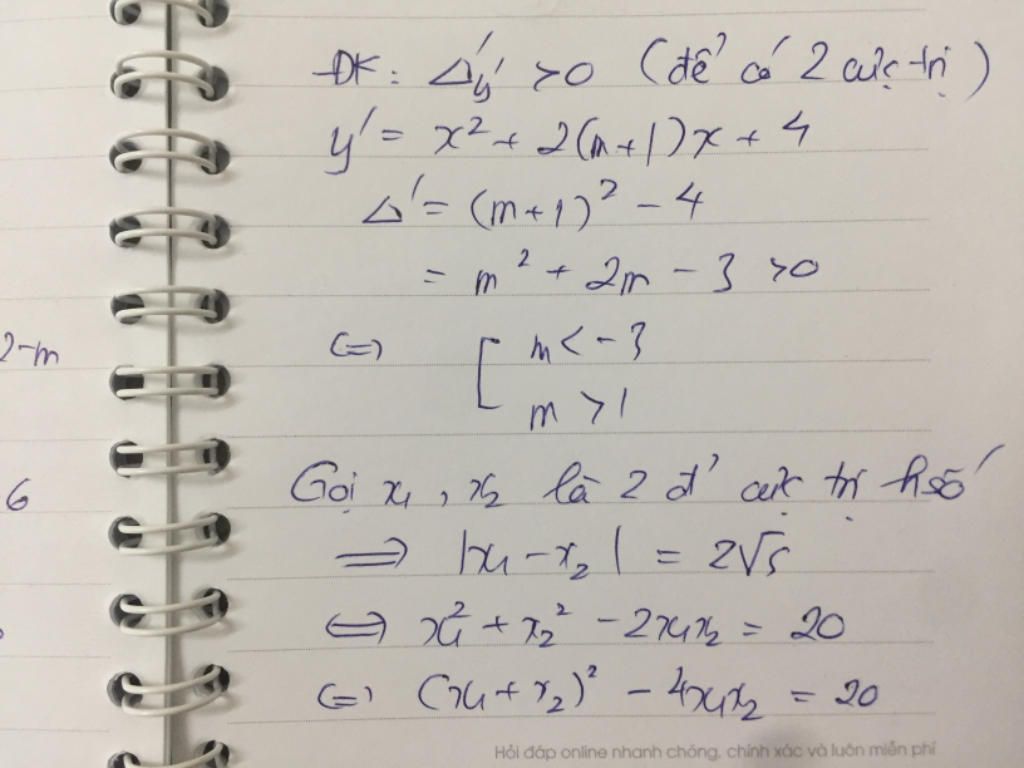 ĐK: Δ'y' >0 (để có 2 cực trị)
y' = x² + 2(m+1)x + 4
Δ' = (m+1)² - 4
= m² + 2m - 3 >0
2-m
⇔ [ m < -3
m > 1
6
Gọi x₁, x₂ là 2 đ' cực trị hsố
⟹ |x₁ - x₂| = 2√5
⇔ x₁² + x₂² - 2x₁x₂ = 20
⇔ (x₁ + x₂)² - 4x₁x₂ = 20
Hỏi đáp online nhanh chóng, chính xác và luôn miễn phí